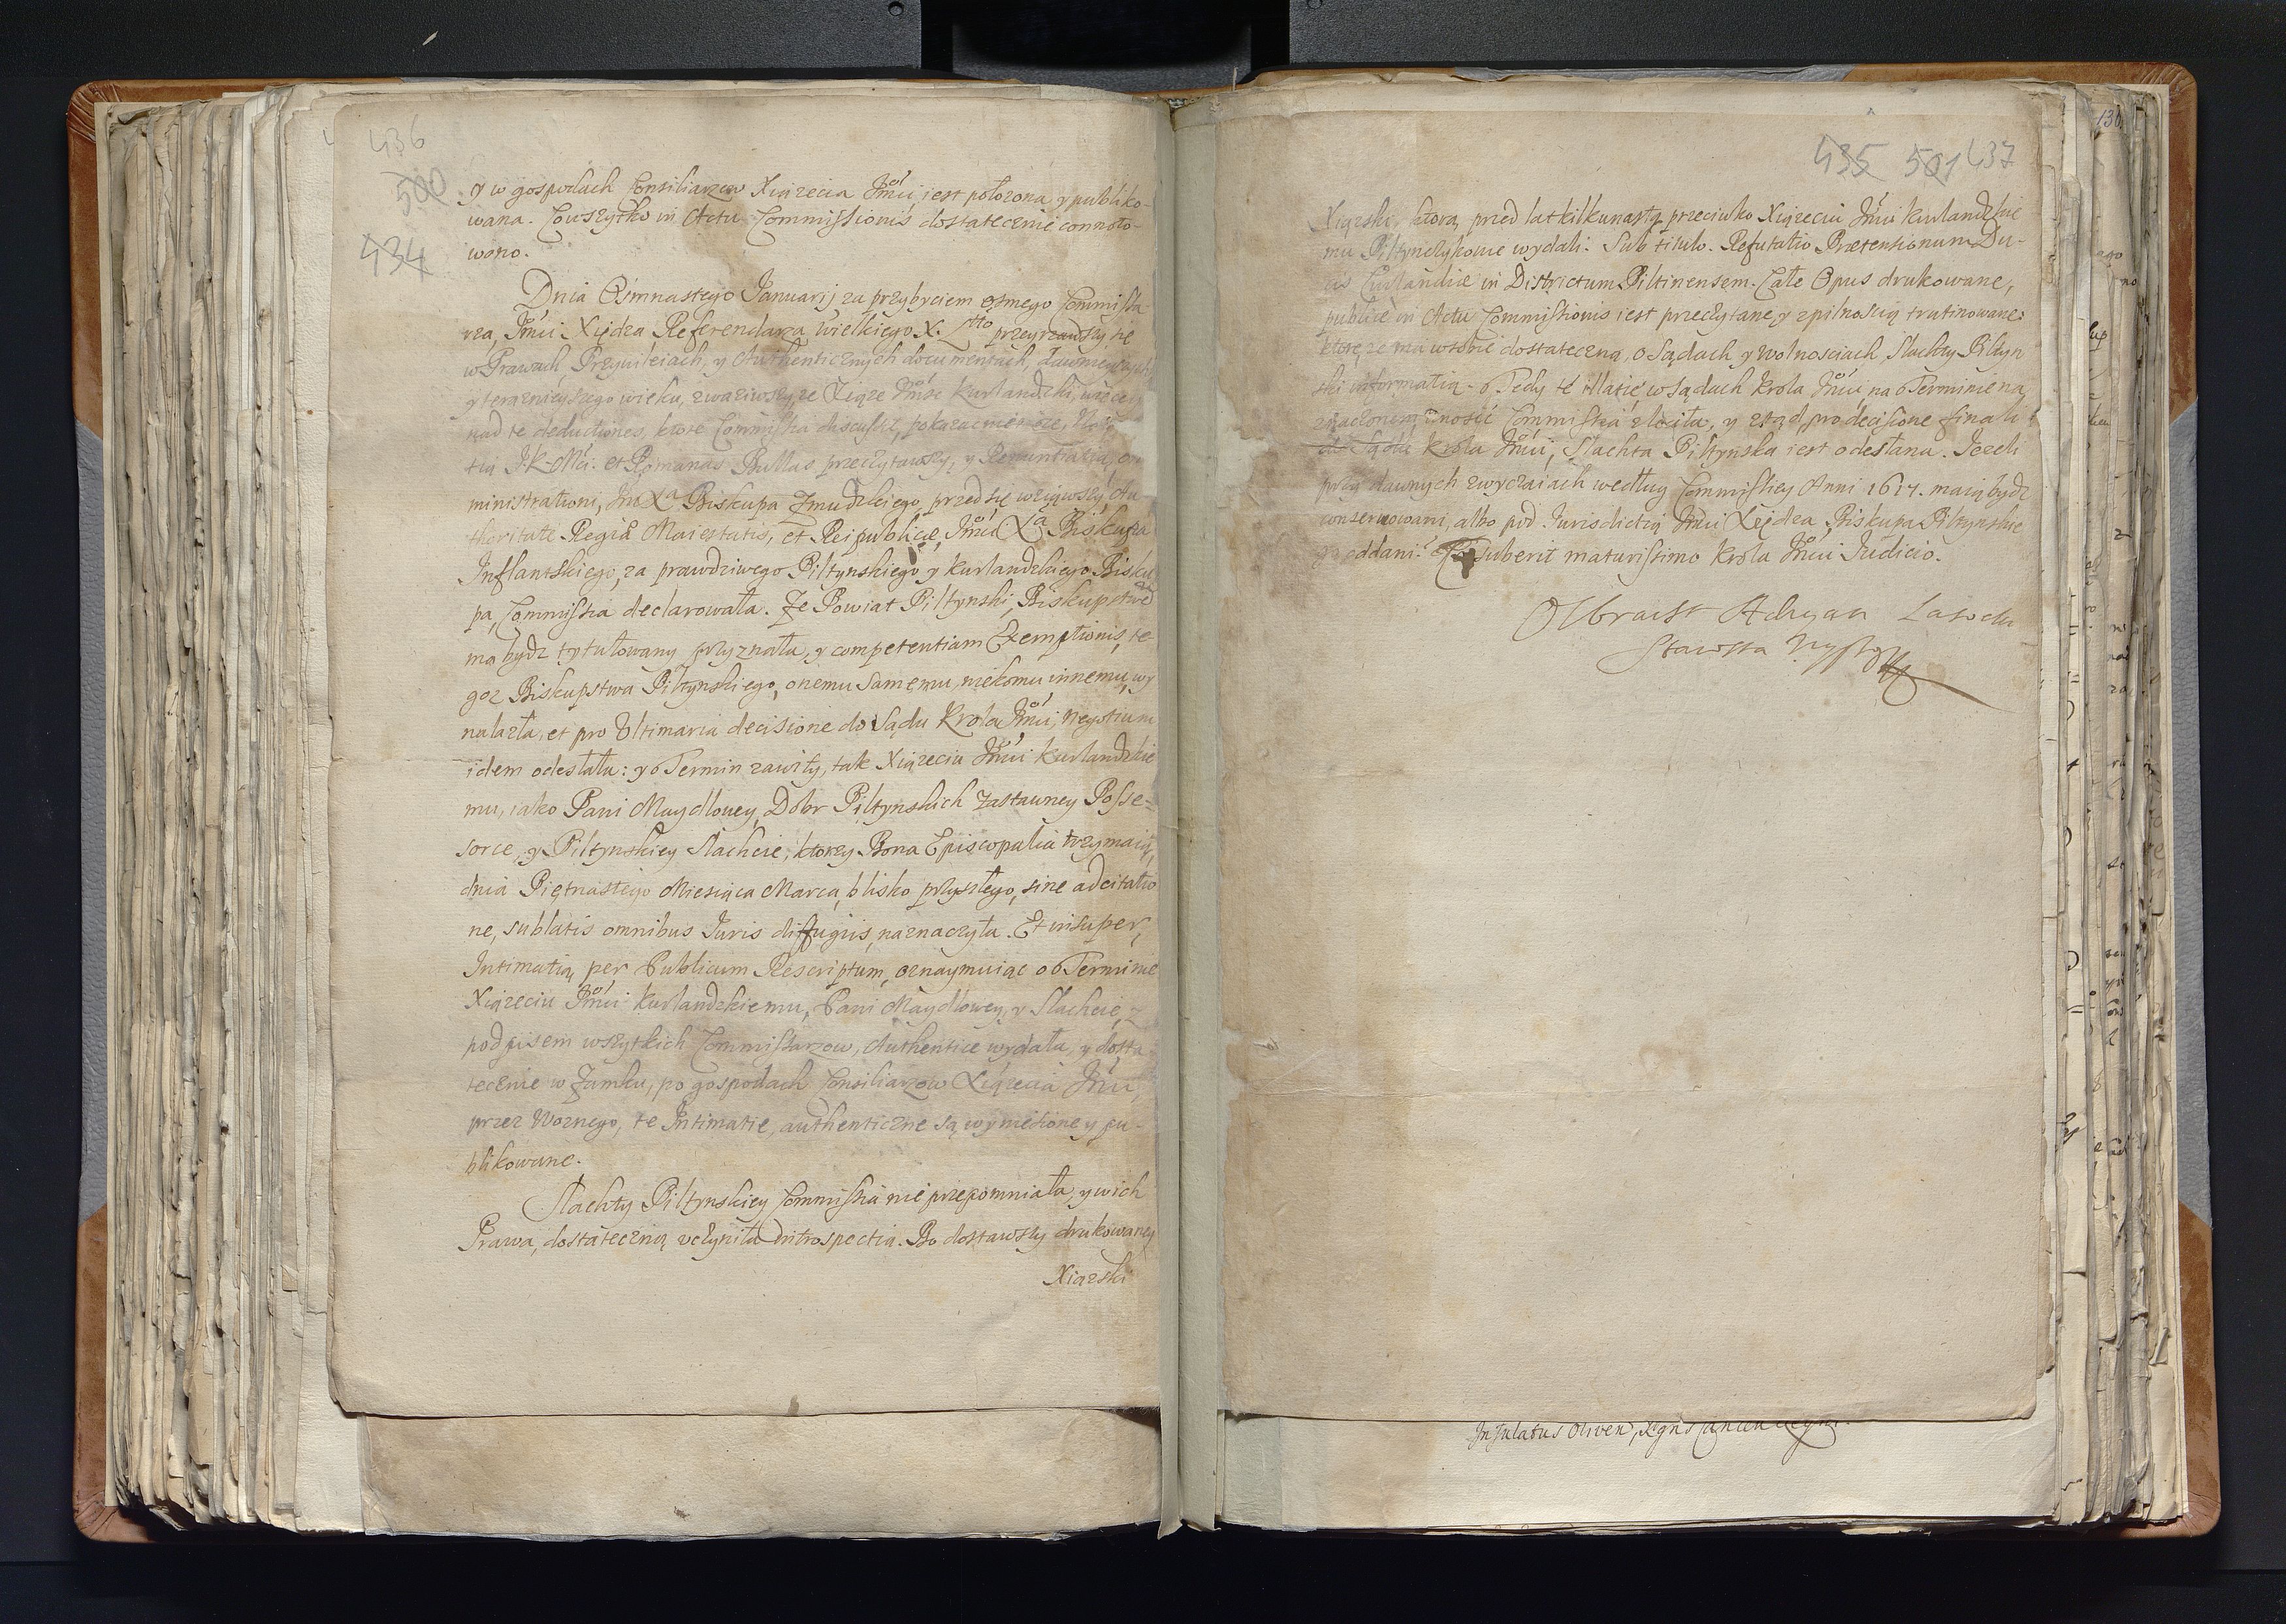 436
500
434
y w gospodach Consiliarzow Xiążęcia Jmci jest położona y publiko-
wana. Co wszytko in Actu Commissionis dostatecznie connoto-
wano.
Dnia Osmnastego Januarij za przybyciem osmego Commissa-
rza, Jmci Xiędza Referendarza Wielkiego X. Ltto przeyrzawszy się
w Prawach, Przywileiach, y Authenticznych documentach, dawnieyszych
y teraznieyszego wieku, zwaziwszy ze Xiąze Jmsc Kurlandzki, więcey
nad te deductiones, ktore Commissia discussit, pokazac nie moze,
tią JK Mci. et Romanas Bullas przeczytawszy, y Renuntiatią
ministrationi, Jm Xa Biskupa Zmudzkiego przed się wziąwszy, Au-
thoritate Regiæ Maiestatis, et Reipublicæ, Jmci Xa Biskupa
Inflantskiego, za prawdziwego Piltynskiego y Kurlandzkiego Bisku
pa, Commissia declarowała. Ze Powiat Piltynski, Biskupstwe
ma bydz tytułowany przyznała, y competentiam Exemptionis, te-
goz Biskupstwa Piltynskiego, onemu samemu, niekomu innemu, wy
nalazła, et pro Ultimaria decisione do Sądu Krola Jmci, negotium
idem odesłała: y Termin zawity, tak Xiązeciu Jmci Kurlandzkie
mu, iako Pani Maydlowey, Dobr Piltynskich Zastawney Posse-
sorce, y Piltynskiey Slachcie, ktorzy Bona Episcopalia trzymaią,
dnia Piętnastego Miesiąca Marca, blisko przyszłego, sine adcitatio
ne, sublatis omnibus Juris diffugiis, naznaczyła. Et insuper,
Intimatią per Publicum Rescriptum, oznaymuiąc o Terminie
Xiązeciu Jmci Kurlandzkiemu, Pani Maydlowey, y Slachcie, z
podpisem wszytkich Commissarzow, Authentice wydała, y dosta-
tecznie w Zamku, po gospodach Consiliarzow Xiązecia Jmci,
przez Woznego, te Intimatie, authenticzne są wyniesione y pu-
blikowane.
Slachty Piltynskiey Commissia nie przepomniała, y w ich
Prawa, dostateczną uczyniła Introspectią. Bo dostawszy drukowaney
Xiąrski
435 501 437
Xiąrski, ktorą przed lat kilkunastą przeciwko Xiązeciu Jmci Kurlandzkie
mu Piltynczykowie wydali. Sub titulo. Refutatio Prætensionum Du-
cis Curlandiæ in Districtum Piltinensem. Całe Opus drukowane,
publice in Actu Commissionis iest przeczytane, y z pilnoscią trutinowane:
ktore ze ma w sobie dostateczną, o Sądach y Wolnosciach, Slachty Piltyn
ski informatią. Tedy te illatie w Sądach Krola Jmci, na Terminie na
znaczonym wnosic Commissia zlecila, y ztąd pro decisione finali
do Sądu Krola Jmci, Slachta Piltynska iest odesłana. Jezeli
przy dawnych zwyczaiach według Commissiey Anni 1617. maią bydz
conserwowani, albo pod Jurisdictią Jmci Xiędza Biskupa Piltynskie
go oddani. suberit maturissimo Krola Jmci Judicio.
Olbracht Adryan Lasocki
Starosta
Insulatus Oliven, Rgns Cancell
130